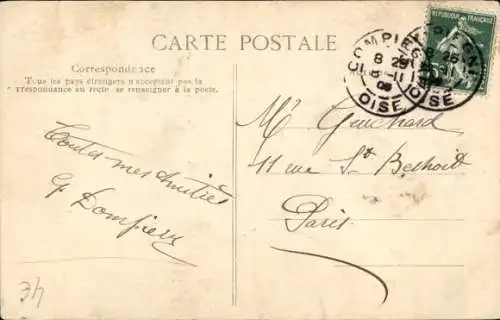 CARTE POSTALE
REPUBLIQUE FRANÇAISE
COMPIEGNE
8 25
8-11
OISE
Correspondance
Tous les pays étrangers n'acceptent pas la
correspondance au recto, se renseigner à la poste.
Mr Guichard
11 rue St
Paris
Toutes mes Amitiés
G. Dompierre